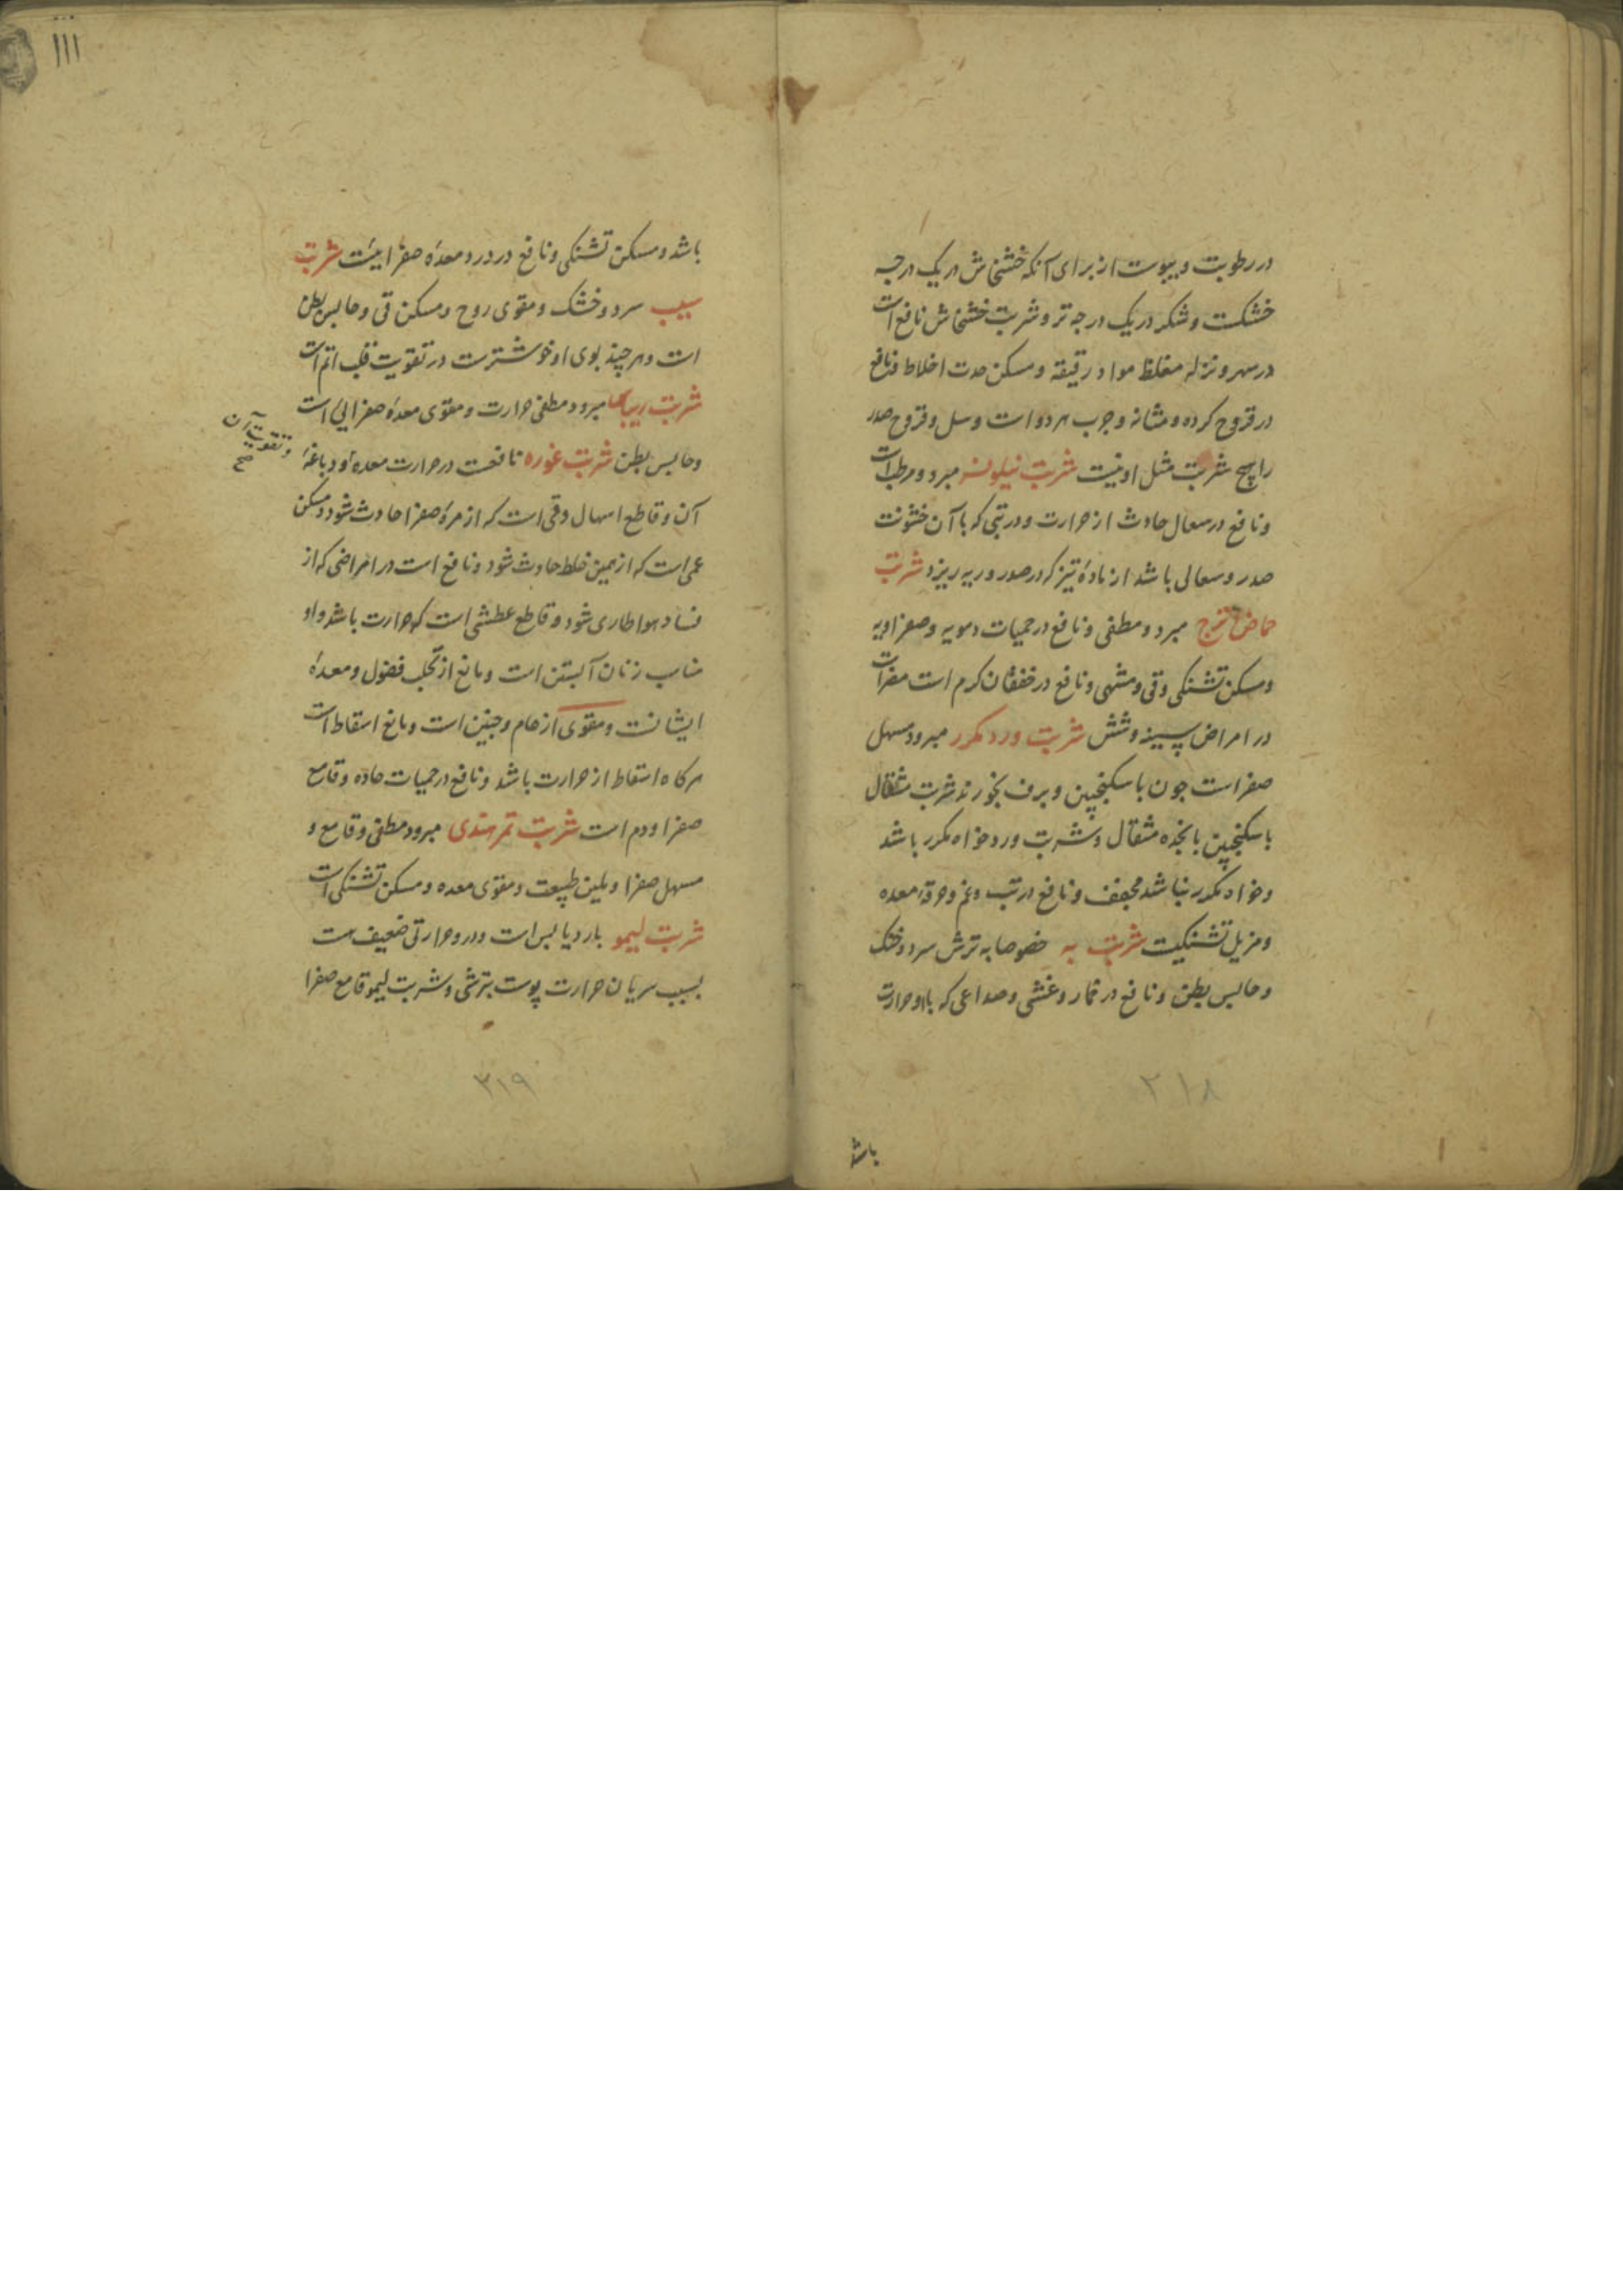 در رطوبت و یبوست از برای آنکه خشخاش در یک درجه
خشکست و شکر در یک درجه تر و شربت خشخاش نافع است
در سهر و نزله مغلظ مواد رقیقه و مسکن حدت اخلاط و نافع
در قروح کرده و مثانه و جرب هر دو است و سل و قروح صدر
را هیچ شربت مثل او نیست شربت نیلوفر مبرد و مرطب است
و نافع در سعال حادث از حرارت و در تبی که با آن خشونت
صدر و سعالی باشد از مادهٔ تیز که در صدر و ریه ریزد شربت
حماض اترج مبرد و مطفی و نافع در حمیات دمویه و صفراویه
و مسکن تشنکی و قی و مشهی و نافع در خفقان کرم است مضر است
در امراض سینه و شش شربت ورد مکرر مبرد و مسهل
صفراست چون با سکنجبین و برف بخورند شربت مثقال
با سکنجبین پانجده مثقال و شربت ورد خواه مکرر باشد
و خواه مکرر نباشد مجفف و نافع در تب و غم و حرقهٔ معده
و مزیل تشنکیست شربت به خصوصا به ترش سرد و خشک
و حابس بطن و نافع در خمار و غشی و صداعی که با او حرارت
۲۱۸
باشد
۱۱۱
باشد و مسکن تشنکی و نافع در درد معدهٔ صفرائیست شربت
سیب سرد و خشک و مقوی روح و مسکن قی و حابس بطن
است و هر چند بوی او خوشترست در تقویت قلب اتم است
شربت ریباس مبرد و مطفی حرارت و مقوی معدهٔ صفرایی است
و حابس بطن شربت غوره نافعست در حرارت معده و دباغهٔ
و تقویت آن صح
آن و قاطع اسهال و قی است که از مرهٔ صفرا حادث شود و مسکن
غمی است که از همین خلط حادث شود و نافع است در امراضی که از
فساد هوا طاری شود و قاطع عطشی است که حرارت باشد و او
مناسب زنان آبستن است و مانع از تحلب فضول و معدهٔ
ایشانست و مقوی ارحام و جنین است و مانع اسقاط است
هر کاه اسقاط از حرارت باشد و نافع در حمیات حاده و قامع
صفرا و دم است شربت تمر هندی مبرد و مطفی و قامع و
مسهل صفرا و ملین طبیعت و مقوی معده و مسکن تشنکی است
شربت لیمو بارد یابس است و در و حرارتی ضعیف هست
بسبب سریان حرارت پوست بترشی و شربت لیمو قامع صفرا
۳۱۹